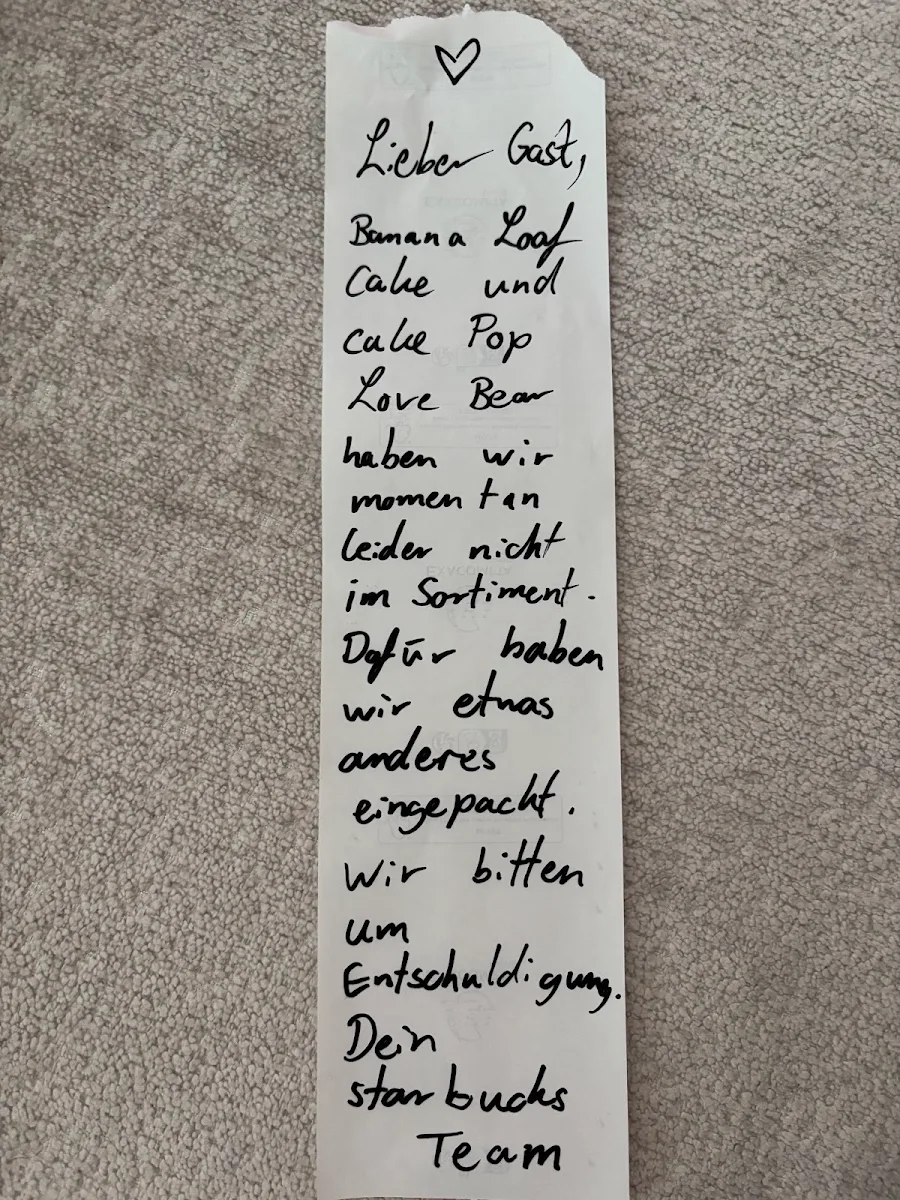 Lieber Gast,
Banana Loaf
Cake und
cake Pop
Love Bear
haben wir
momentan
leider nicht
im Sortiment.
Dafür haben
wir etwas
anderes
eingepackt.
Wir bitten
um
Entschuldigung.
Dein
starbucks
Team